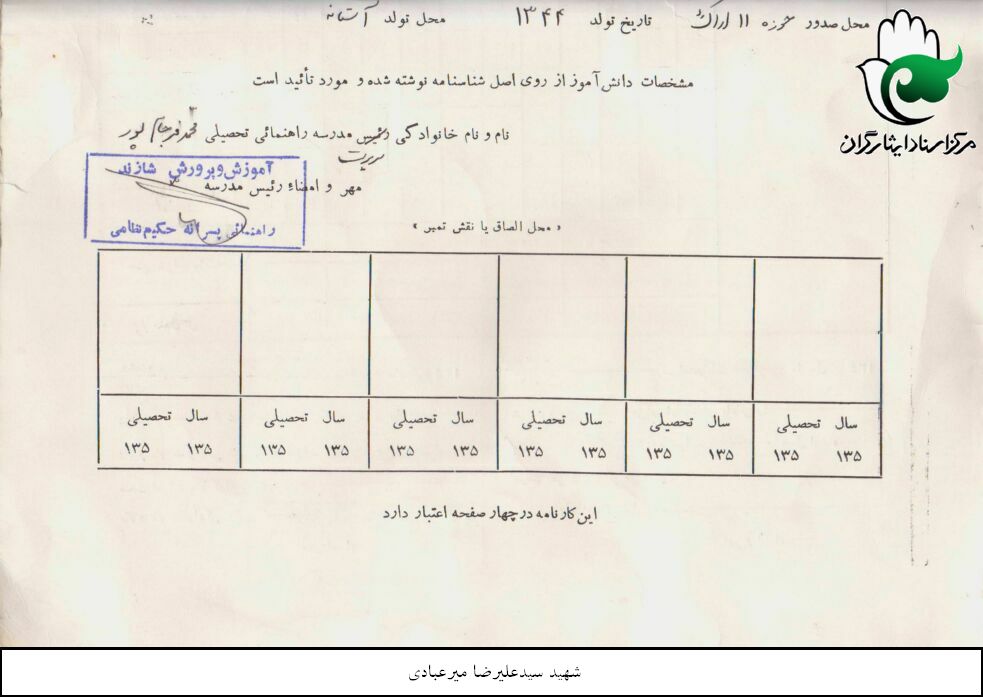 محل صدور حوزه ۱۱ اراک تاریخ تولد ۱۳۴۴ محل تولد آستانه
مرکز اسناد ایثارگران
مشخصات دانش‌آموز از روی اصل شناسنامه نوشته شده و مورد تأئید است
نام و نام خانوادگی رئیس مدرسه راهنمائی تحصیلی محمد فرجام پور
سرپرست
مهر و امضاء رئیس مدرسه
آموزش و پرورش شازند
راهنمائی پسرانه حکیم نظامی
« محل الصاق یا نقش تمبر »
سال تحصیلی سال تحصیلی سال تحصیلی سال تحصیلی سال تحصیلی سال تحصیلی
۱۳۵ ۱۳۵ ۱۳۵ ۱۳۵ ۱۳۵ ۱۳۵ ۱۳۵ ۱۳۵ ۱۳۵ ۱۳۵ ۱۳۵ ۱۳۵
این کارنامه در چهار صفحه اعتبار دارد
شهید سیدعلیرضا میرعبادی